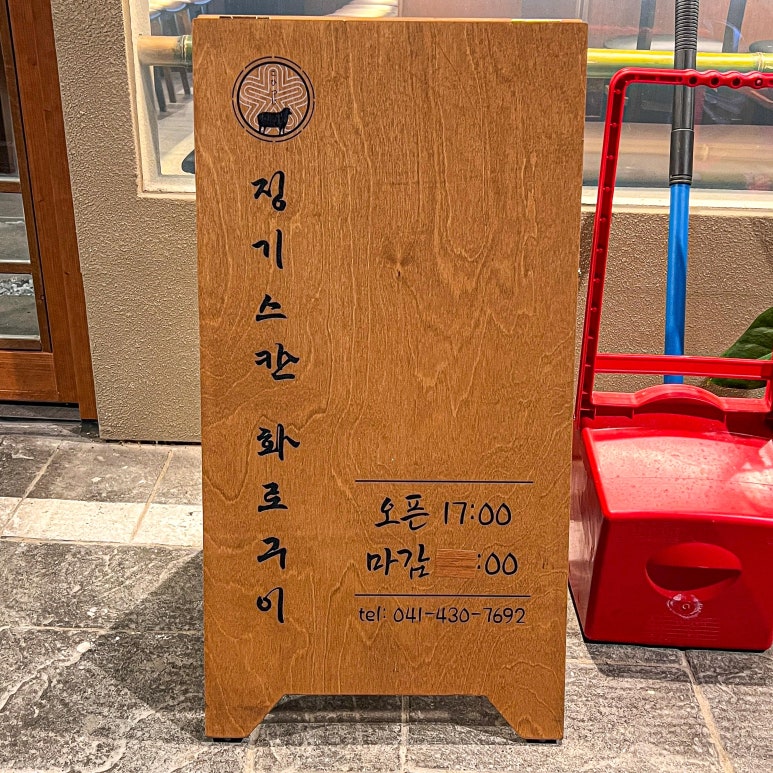 징기스칸 화로구이
오픈 17:00
마감 :00
tel: 041-430-7692